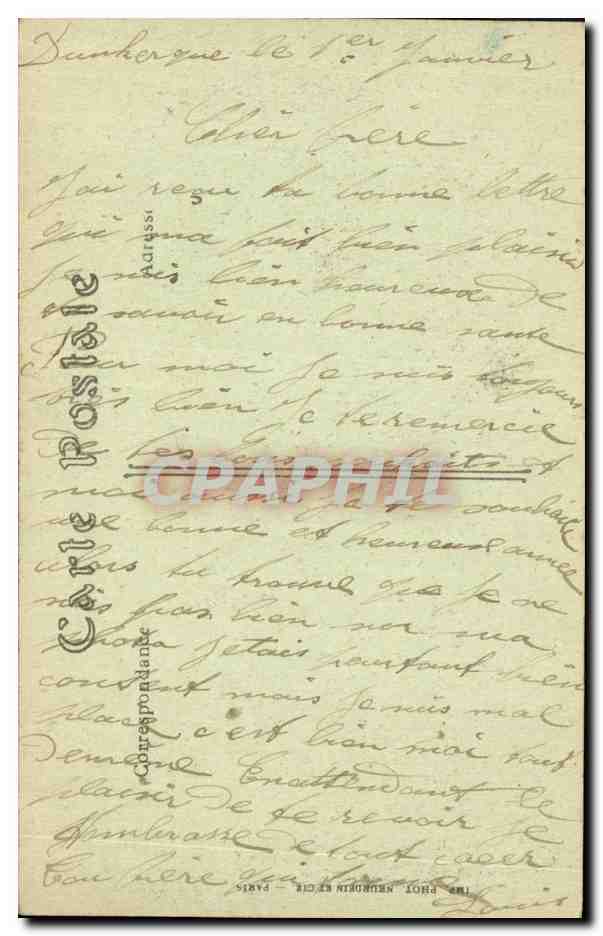 Dunkerque le 1er Janvier
Cher frère
J'ai reçu ta bonne lettre
qui ma fait bien plaisir
Je suis bien heureux de
savoir en bonne sante
Pour moi Je suis toujours
bien Je te remercie
De tes bons souhaits et
moi aussi Je te souhaite
une bonne et heureuse année
alors tu trouve que Je ne
suis pas bien sur ma
photo Jetais pourtant bien
content mais Je suis mal
placé c'est bien moi tout
De meme Enattendant le
plaisir De te revoir Je
t'humbrasse De tout cœer
Ton frère qui t'aime
Louis
Carte Postale
Correspondance
Adresse
IMP. PHOT. NEURDEIN ET CIE — PARIS
CPAPHIL